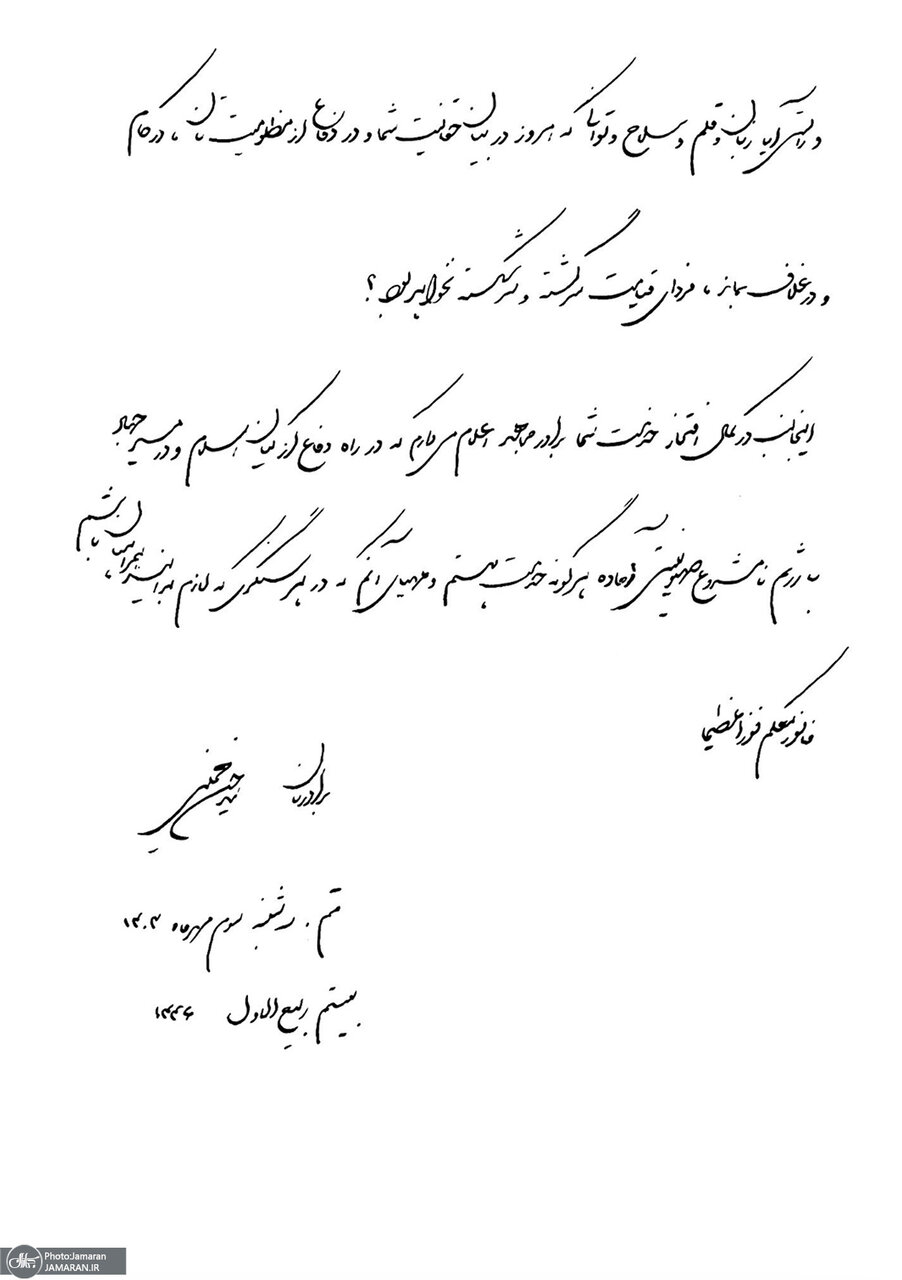 و راستی آیا زبان و قلم و سلاح و توانی که امروز در بیان حقانیت شما و در دفاع از مظلومیت‌تان، در کام
و در غلاف بماند، فردای قیامت سرگشته و سرشکسته نخواهد بود؟
اینجانب در کمال افتخار خدمت شما برادر مجاهد اعلام می دارم که در راه دفاع از کیان اسلام و در مسیر جهاد
با رژیم نامشروع صهیونیستی آماده هرگونه خدمت هستم و مهیای آنم که در هر سنگری که لازم بدانید همراهتان باشم
فافوز معکم فوزا عظیما
برادرتان سید حسن خمینی
قم. سه شنبه سوم مهرماه ۱۴۰۳
بیستم ربیع الاول ۱۴۴۶
Photo:Jamaran
JAMARAN.IR